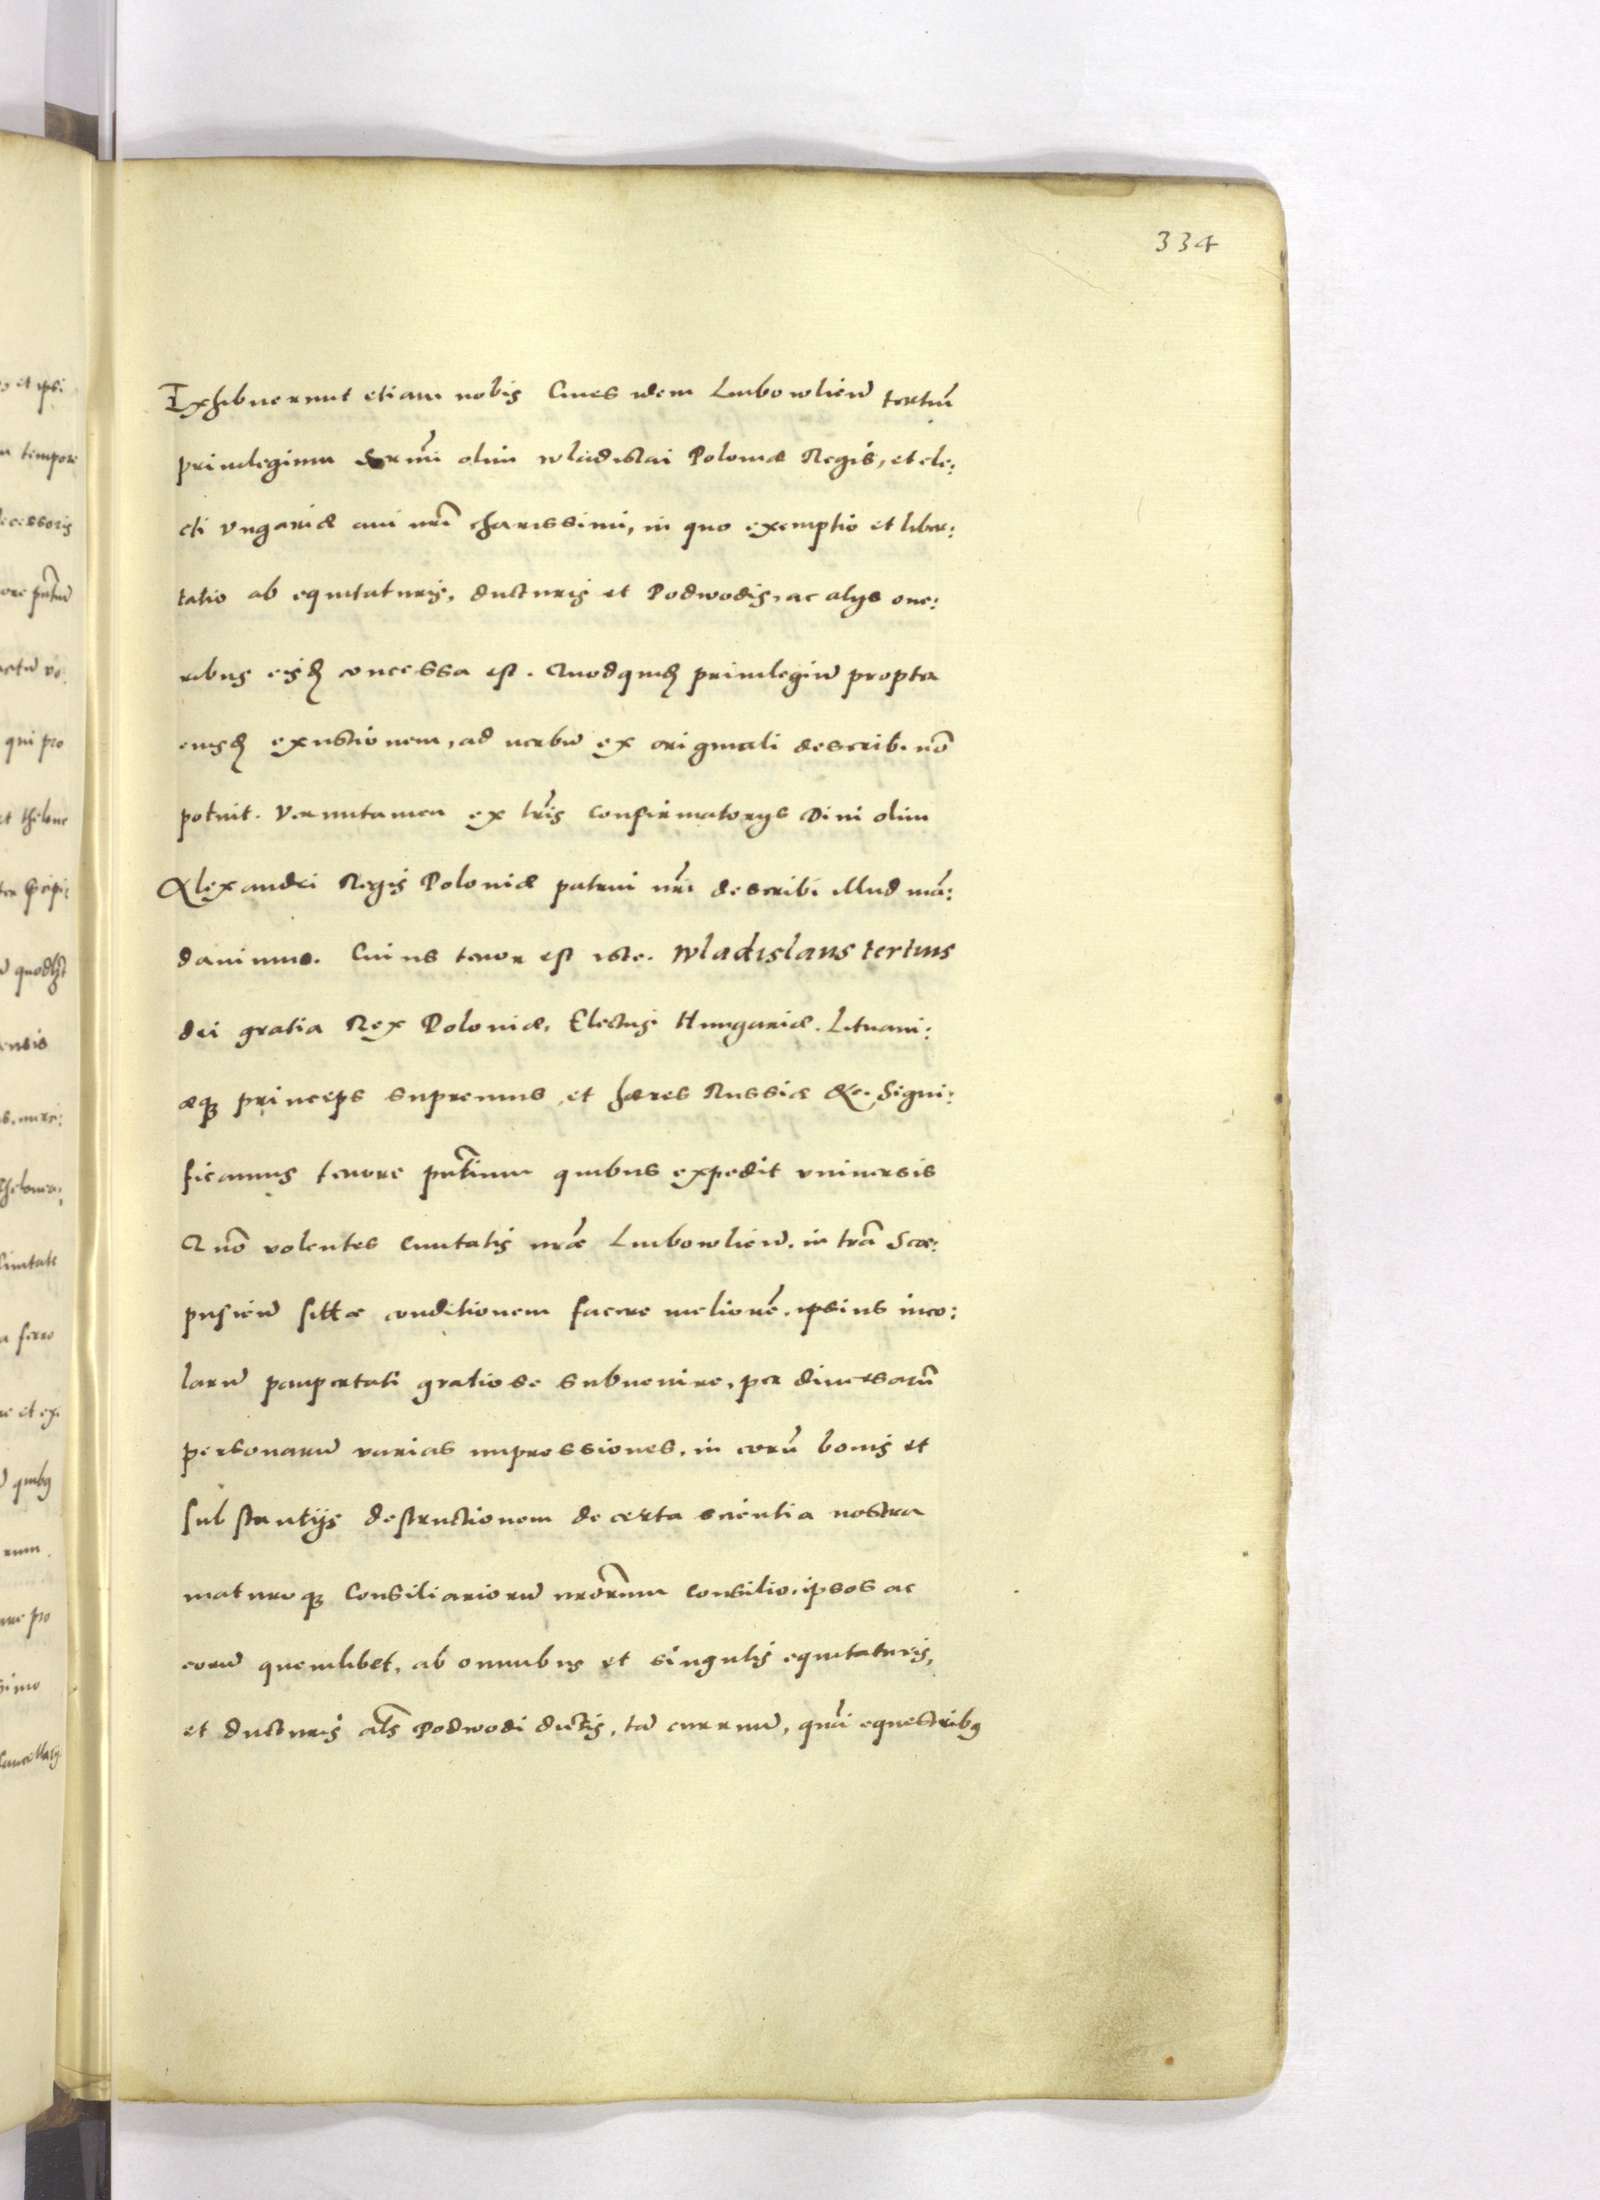 334
Exhibuerunt etiam nobis Ciues idem Liubowlień tertiũ
priuilegium Serm̃i olim wladislai Poloniæ Regis, et ele:
cti vngariæ aui nr̃i charissimi, in quo exemptio et liber:
tatio ab equitaturis, ducturis et Podwodis, ac alijs one:
ribus eisd concessa est. Quodquid priuilegiũ propter
eiusd exustionem, ad verbũ ex originali describi nõ
potuit. Verumtamen ex lr̃is confirmatorijs Diui olim
Alexandri Regis Poloniæ patrui nr̃i describi illud mã:
dauimus. Cuius tenor est iste. Wladislaus tertius
dei gratia Rex Poloniæ, Electus Hungariæ. Lituani:
æq princeps supremus, et hæres Russiæ &c. Signi:
ficamus tenore pñtium quibus expedit vniuersis
Quõ volentes Ciuitatis nr̃æ Liubowlień. in tr̃a Scæ:
pusień sittæ conditionem facere meliorẽ. ipsius inco:
larũ paupertati gratiose subuenire, per diuersarũ
personarũ varias impressiones, in eorũ bonis et
substantijs destructionem de certa scientia nostra
maturoq Consiliariorũ nr̃orum consilio. ipsos ac
eorũ quemlibet, ab omnibus et singulis equitaturis,
et ducturis al̃s Podwodi dictis, tã curruũ, quã equestribꝰ
et ipsi
tempore
decessoris
qui pro
et ex
quibꝰ